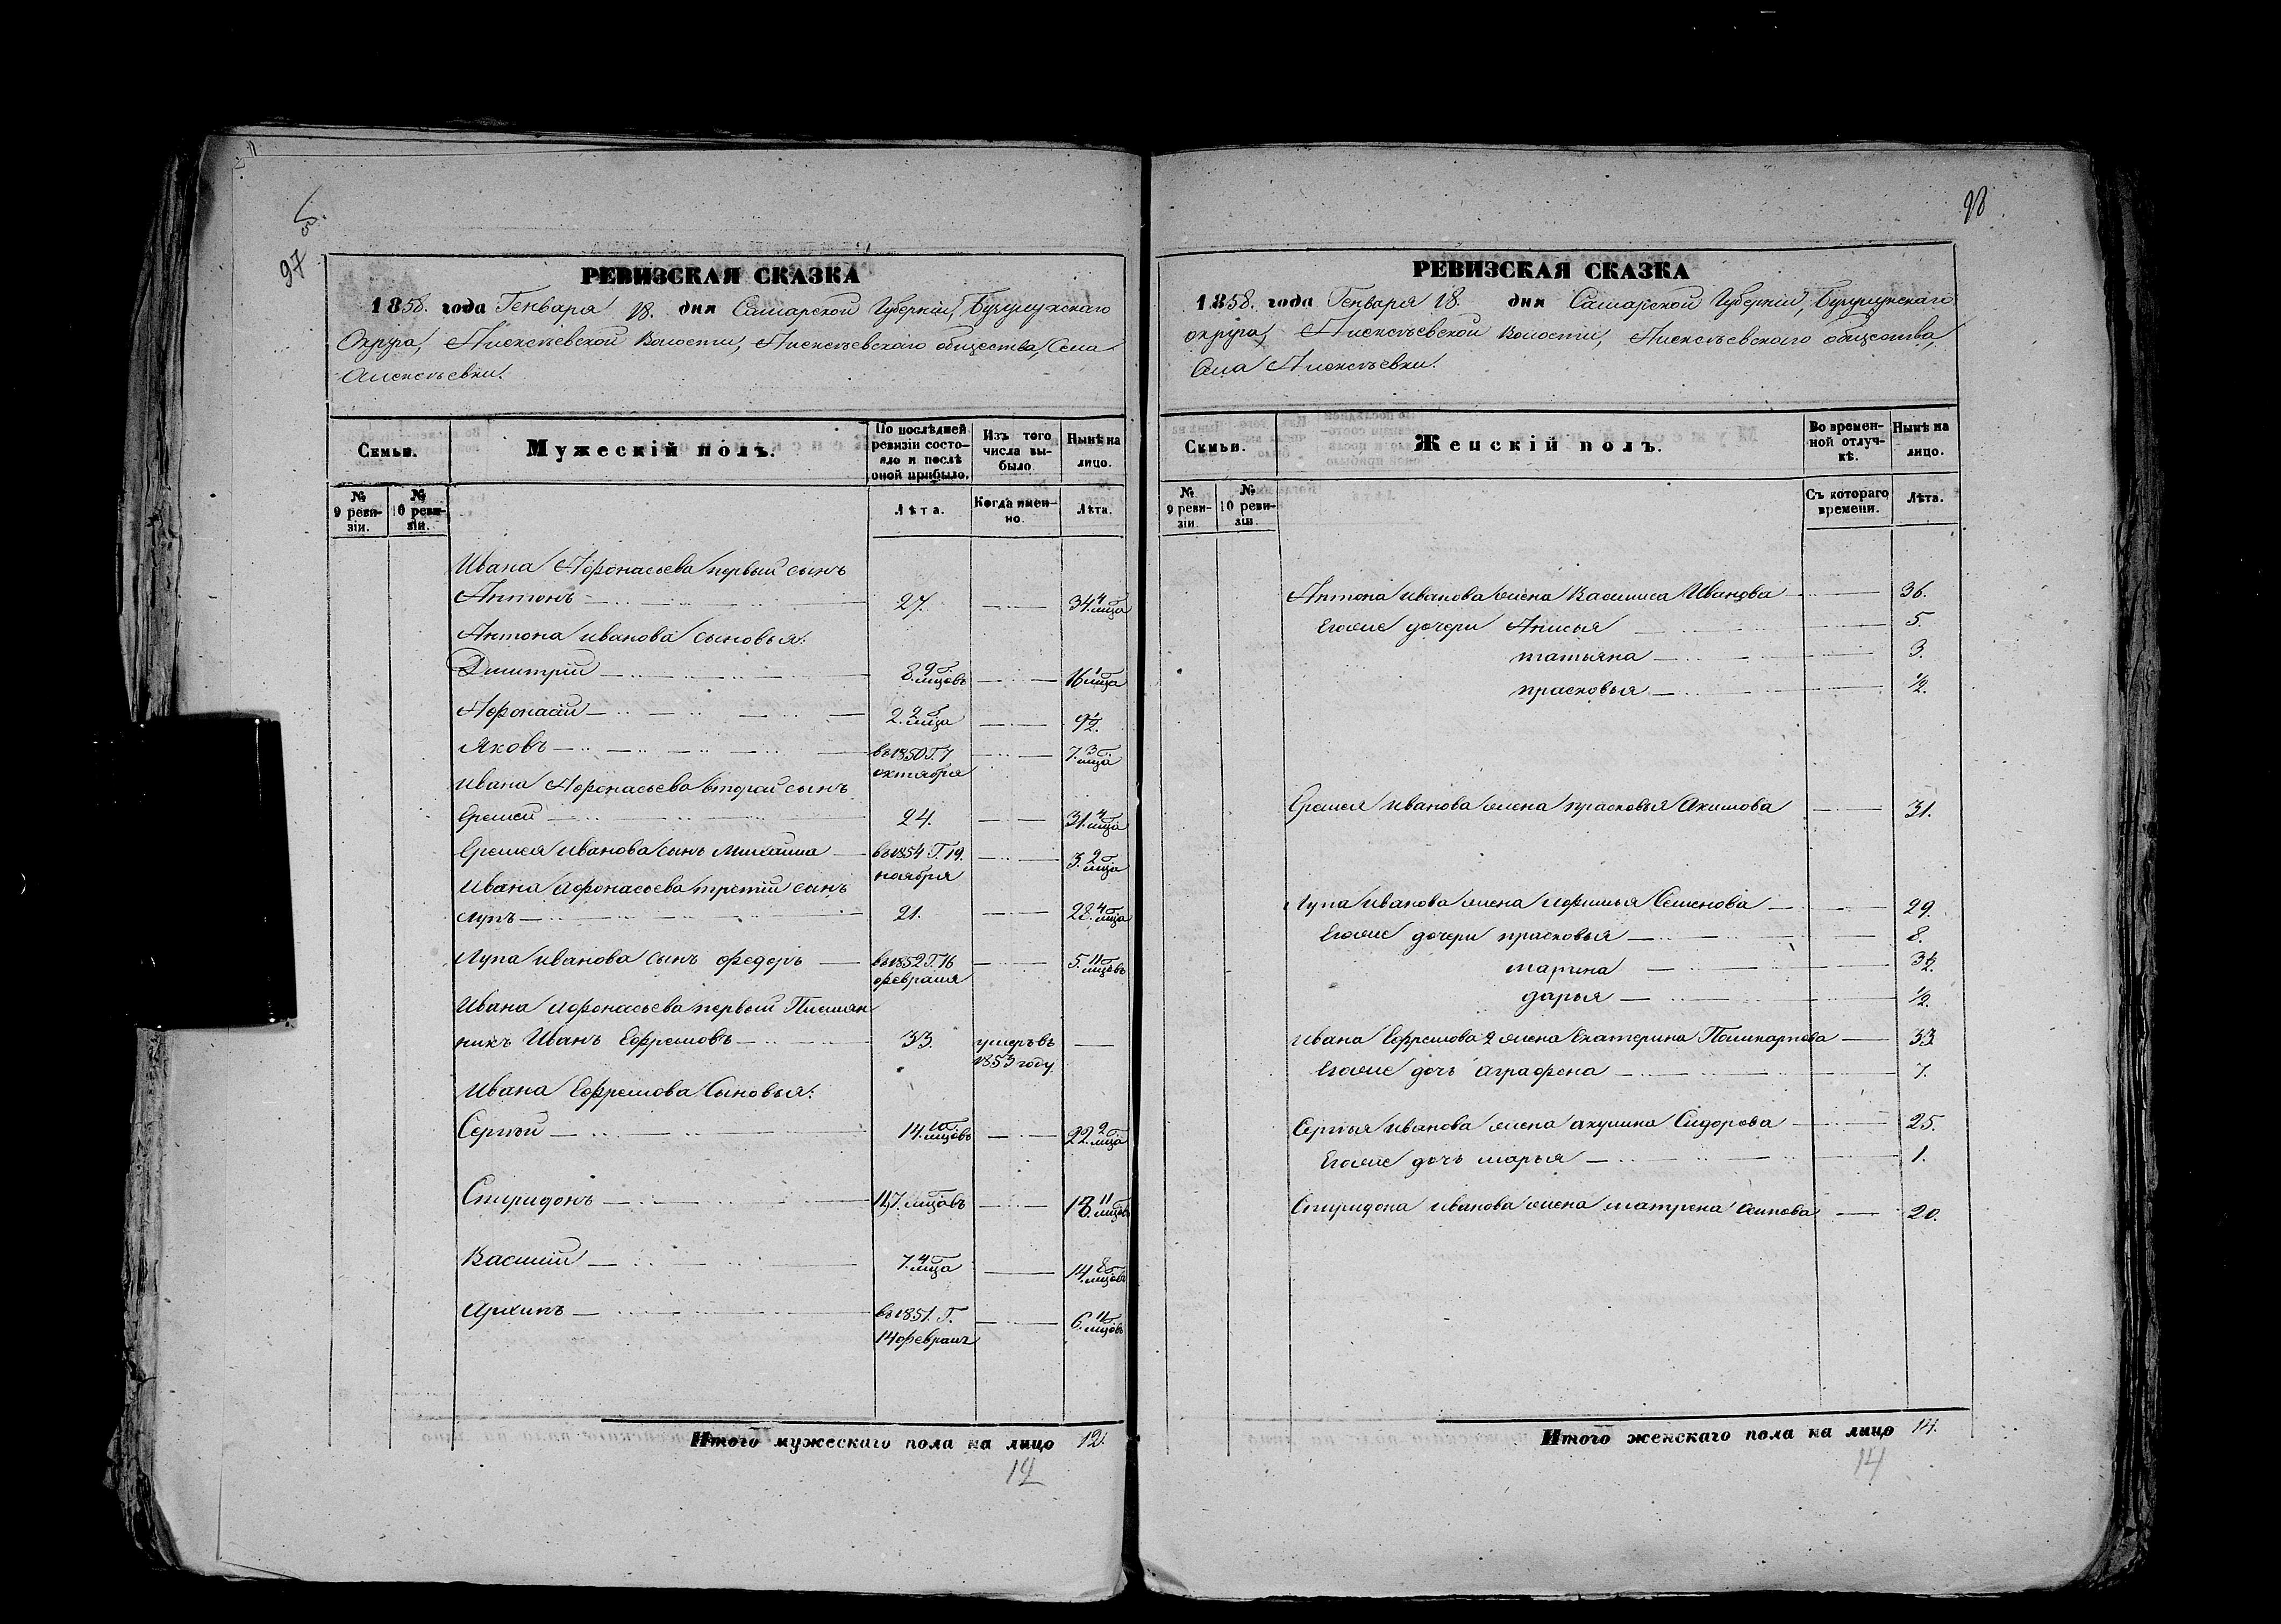 97
РЕВИЗСКАЯ СКАЗКА
1858. года Генваря 18. дня Самарской Губерніи, Бузулукскаго
Округа, Алексѣевской Волости, Алексѣевскаго общества, Села
Алексѣевки.
Семьи.
Мужескій полъ.
По послѣдней ревизіи состояло и послѣ оной прибыло.
Изъ того числа выбыло.
Нынѣ на лицо.
№ 9 ревизіи.
№ 10 ревизіи.
Лѣта.
Когда именно.
Лѣта.
Ивана Афонасьева первый сынъ
Антонъ 27. 34. 4 мца
Антона Иванова сыновья:
Дмитрій 8. 9 мцовъ 16 1 мца
Афонасій 2. 2 мца 9 1/2.
Яковъ въ 1850 Г. 7 октября 7. 3 мца
Ивана Афонасьева второй сынъ
Еремей 24. 31. 4 мца
Еремея Иванова сынъ Михайла въ 1854 Г. 19. ноября 3. 2 мца
Ивана Афонасьева третій сынъ
Лупъ 21. 28. 4 мца
Лупа Иванова сынъ Федоръ въ 1852 Г. 16 февраля 5. 11 мцовъ
Ивана Афонасьева первый Племян
никъ Иванъ Ефремовъ 33. умеръ въ 1853 году
Ивана Ефремова Сыновья:
Сергѣй 14. 10 мцовъ 22. 2 мца
Спиридонъ 11,7. мцовъ 18. 11 мцовъ
Василій 7. 4 мца 14. 8 мцовъ
Архипъ въ 1851. Г. 14 феврал 6. 11 мцовъ
Итого мужескаго пола на лицо 12.
12
98
РЕВИЗСКАЯ СКАЗКА
1858. года Генваря 18. дня Самарской Губерніи, Бузулукскаго
округа, Алексѣевской Волости, Алексѣевскаго общества,
Села Алексѣевки.
Семьи.
Женскій полъ.
Во временной отлучкѣ.
Нынѣ на лицо.
№ 9 ревизіи.
№ 10 ревизіи.
Съ котораго времени.
Лѣта.
Антона Иванова жена Василиса Иванова 36.
Егоже дочери Анисья 5.
татьяна 3.
прасковья 1/2.
Еремея Иванова жена прасковья Акимова 31.
Лупа Иванова жена Афимья Семенова 29.
Егоже дочери прасковья 8.
марина 3 1/2.
дарья 1/2.
Ивана Ефремова 2 жена Екатерина Поликарпова 33
Егоже дочь аграфена 7.
Сергѣя Иванова жена акулина Сидорова 25.
Егоже дочь марья 1.
Спиридона Иванова жена матрена Осипова 20.
Итого женскаго пола на лицо 14.
14